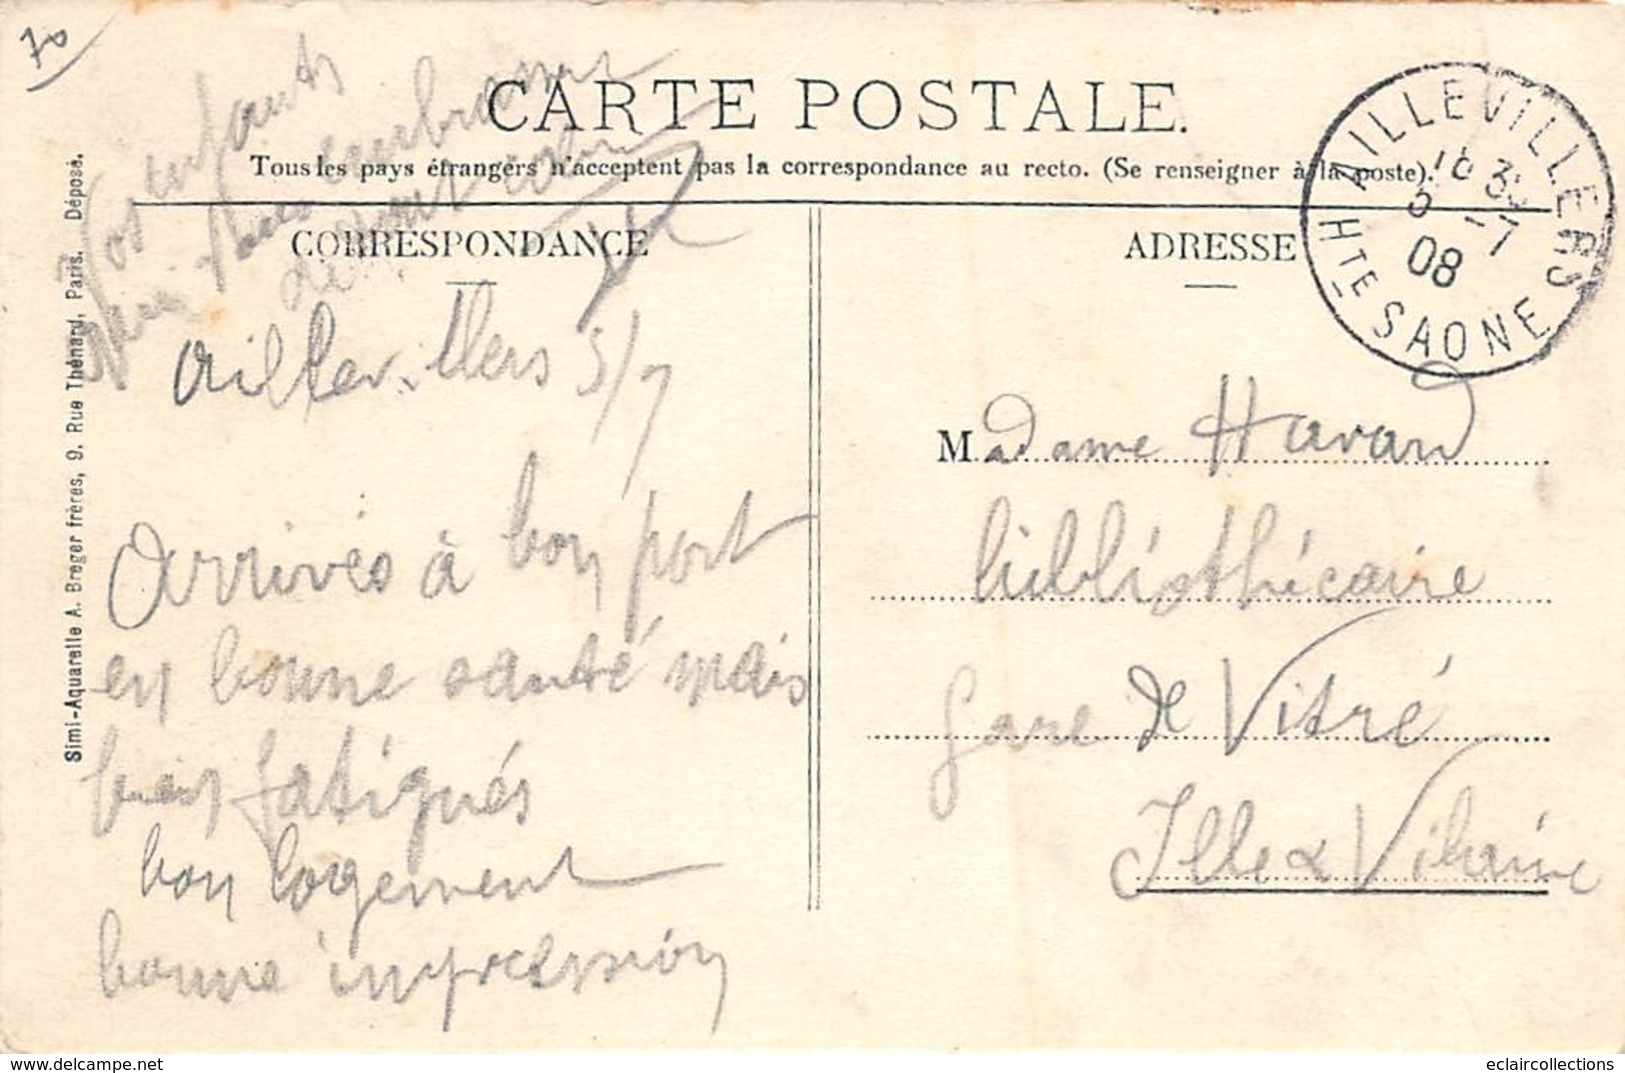 70
CARTE POSTALE.
Tous les pays étrangers n'acceptent pas la correspondance au recto. (Se renseigner à la poste).
CORRESPONDANCE
ADRESSE
AILLEVILLERS
Hte SAONE
5 -7
08
Simi-Aquarelle A. Breger frères, 9, Rue Thénard, Paris. Déposé.
Vos enfants
qui vous embrassent
Aillevillers 5/7
Arrivés à bon port
en bonne santé mais
bien fatigués
bon logement
bonne impression
Madame Havard
bibliothécaire
Gare de Vitré
Ille & Vilaine
www.delcampe.net
eclaircollections